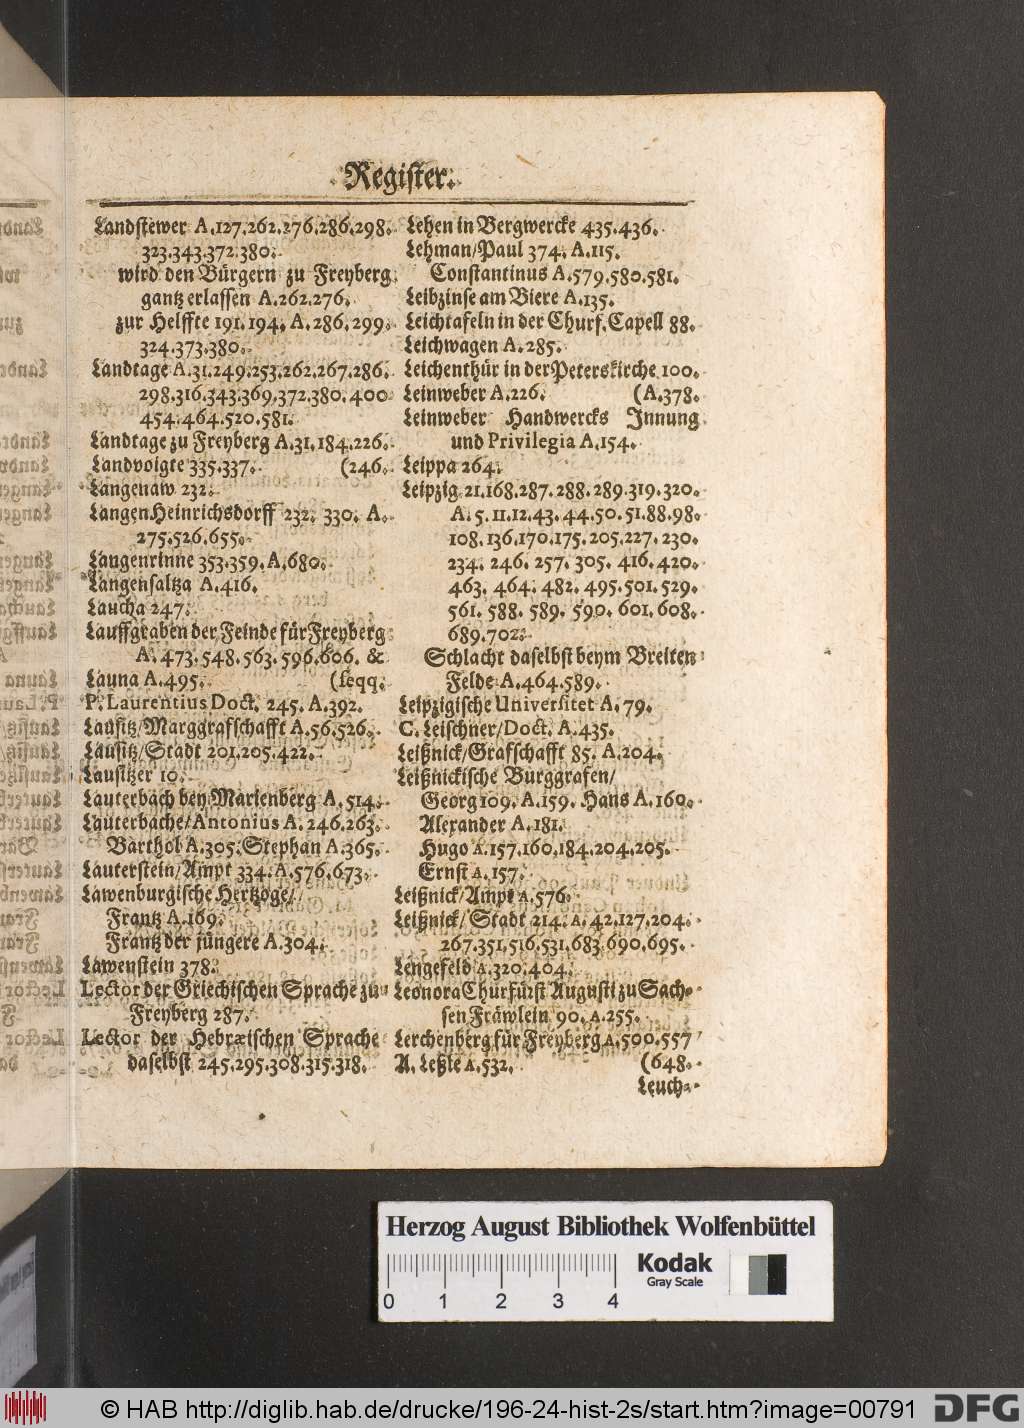 Register.
Landstewer A.127.262.276.286.298.
323.343.372.380.
wird den Bürgern zu Freyberg
gantz erlassen A.262.276.
zur Helffte 191.194. A.286.299.
324.373.380.
Landtage A.31.249.253.262.267.286.
298.316.343.369.372.380.400
454.464.520.581.
Landtage zu Freyberg A.31.184.226.
Landvoigte 335.337. (246.
Langenaw 232.
LangenHeinrichsdorff 232. 330. A.
275.526.655.
Langenrinne 353.359.A.680.
Langensaltza A.416.
Laucha 247.
Lauffgraben der Feinde für Freyberg
A. 473.548.563.596.606. &
Launa A.495. (seqq.
P. Laurentius Doct. 245. A.392.
Lausitz/Marggrafschafft A.56.526.
Lausitz/Stadt 201.205.422.
Lausitzer 10.
Lauterbach bey Marienberg A.514.
Lauterbache/Antonius A.246.263.
Barthol A.305.Stephan A.365.
Lauterstein/Ampt 334.A.576.673.
Lawenburgische Hertzoge/
Frantz A.169.
Frantz der jüngere A.304.
Lawenstein 378.
Lector der Griechischen Sprache zu
Freyberg 287.
Lector der Hebræischen Sprache
daselbst 245.295.308.315.318.
Lehen in Bergwercke 435.436.
Lehman/Paul 374. A.115.
Constantinus A.579.580.581.
Leibzinse am Biere A.135.
Leichtafeln in der Churf.Capell 88.
Leichwagen A.285.
Leichenthür in der Peterskirche 100.
Leinweber A.226. (A.378.
Leinweber Handwercks Innung
und Privilegia A.154.
Leippa 264.
Leipzig 21.168.287.288.289.319.320.
A.5.11.12.43.44.50.51.88.98.
108.136.170.175.205.227.230.
234. 246. 257. 305. 416.420.
463. 464. 482. 495.501.529.
561. 588. 589. 590. 601.608.
689.702.
Schlacht daselbst beym Breiten
Felde A.464.589.
Leipzigische Universitet A.79.
C. Leischner/Doct. A.435.
Leißnick/Grafschafft 85. A.204.
Leißnickische Burggrafen/
Georg 109. A.159. Hans A.160.
Alexander A.181.
Hugo A.157.160.184.204.205.
Ernst A.157.
Leißnick/Ampt A.576.
Leißnick/Stadt 214.A.42.127.204.
267.351.516.531.683.690.695.
Lengefeld A.320.404.
Leonora Churfürst Augusti zu Sach-
sen Fräwlein 90. A.255.
Lerchenberg für Freyberg A.500.557
A. Leßle A.532. (648.
Leuch-
Herzog August Bibliothek Wolfenbüttel
Kodak
Gray Scale
0 1 2 3 4
© HAB http://diglib.hab.de/drucke/196-24-hist-2s/start.htm?image=00791
DFG